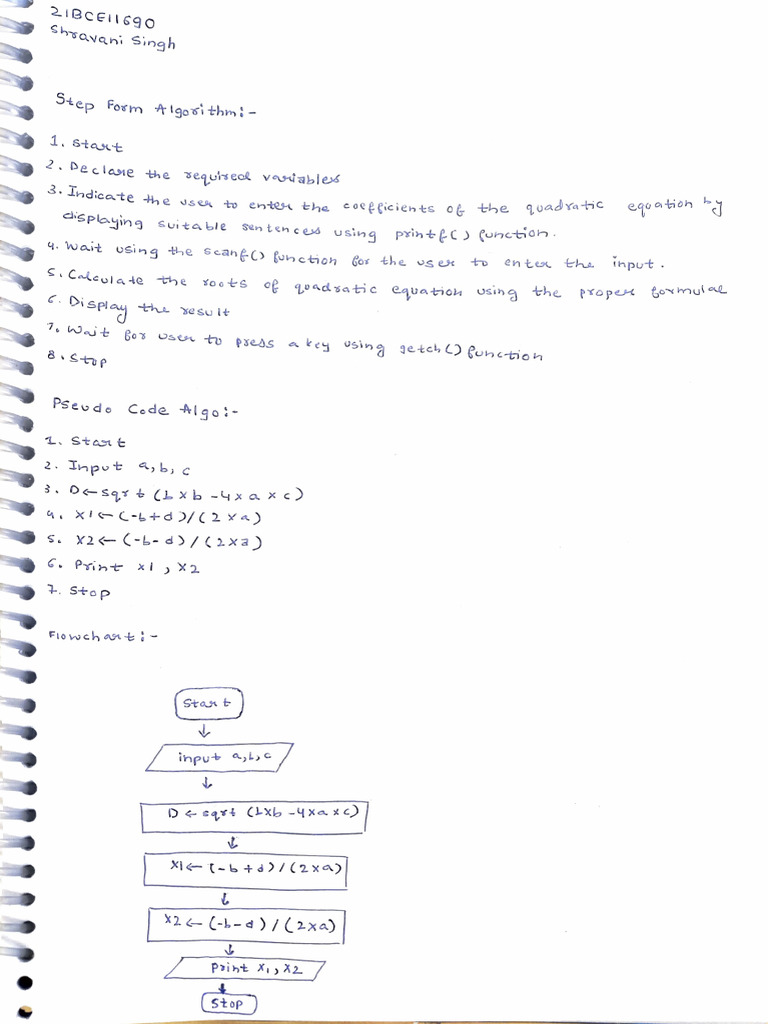 21BCE11690
Shravani Singh
Step Form Algorithm:-
1. Start
2. Declare the required variables
3. Indicate the user to enter the coefficients of the quadratic equation by
displaying suitable sentences using printf() function.
4. Wait using the scanf() function for the user to enter the input.
5. Calculate the roots of quadratic equation using the proper formulae
6. Display the result
7. Wait for user to press a key using getch() function
8. Stop
Pseudo Code Algo:-
1. Start
2. Input a, b, c
3. D ← sqrt (b × b - 4 × a × c)
4. X1 ← (-b + d) / (2 × a)
5. X2 ← (-b - d) / (2 × a)
6. Print x1, x2
7. Stop
Flowchart:-
Start
input a, b, c
D ← sqrt (b × b - 4 × a × c)
X1 ← (-b + d) / (2 × a)
X2 ← (-b - d) / (2 × a)
print x1, x2
Stop